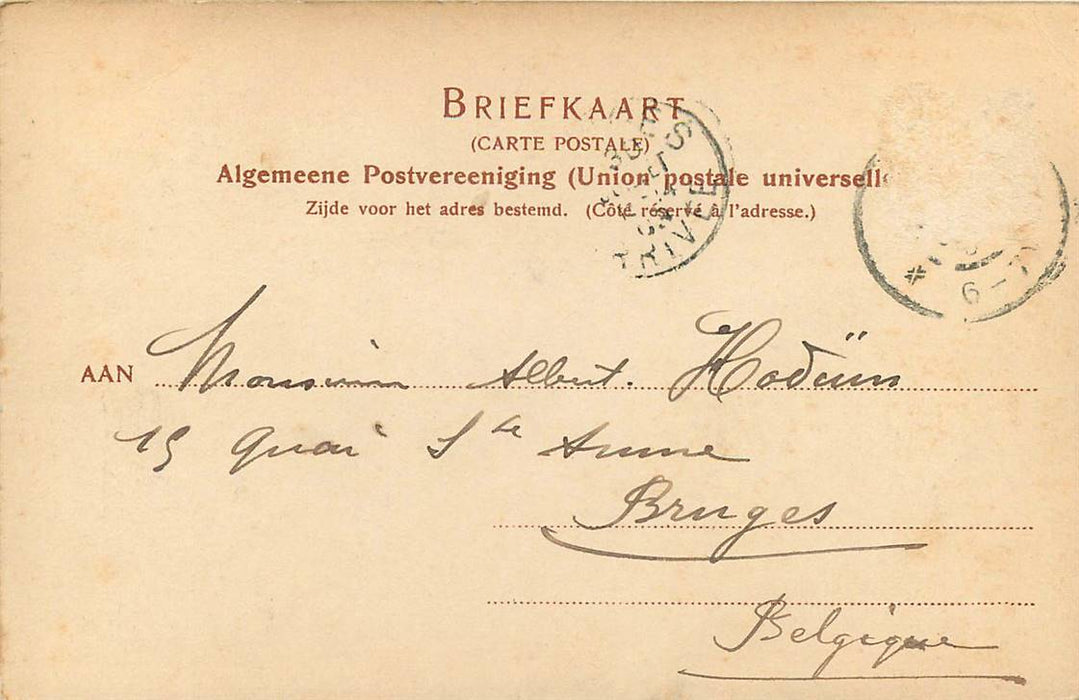 BRIEFKAART
(CARTE POSTALE)
Algemeene Postvereeniging (Union postale universell
Zijde voor het adres bestemd. (Côté réservé à l'adresse.)
AAN Monsieur Albert. Hodüm
15 Quai Ste Anne
Bruges
Belgique